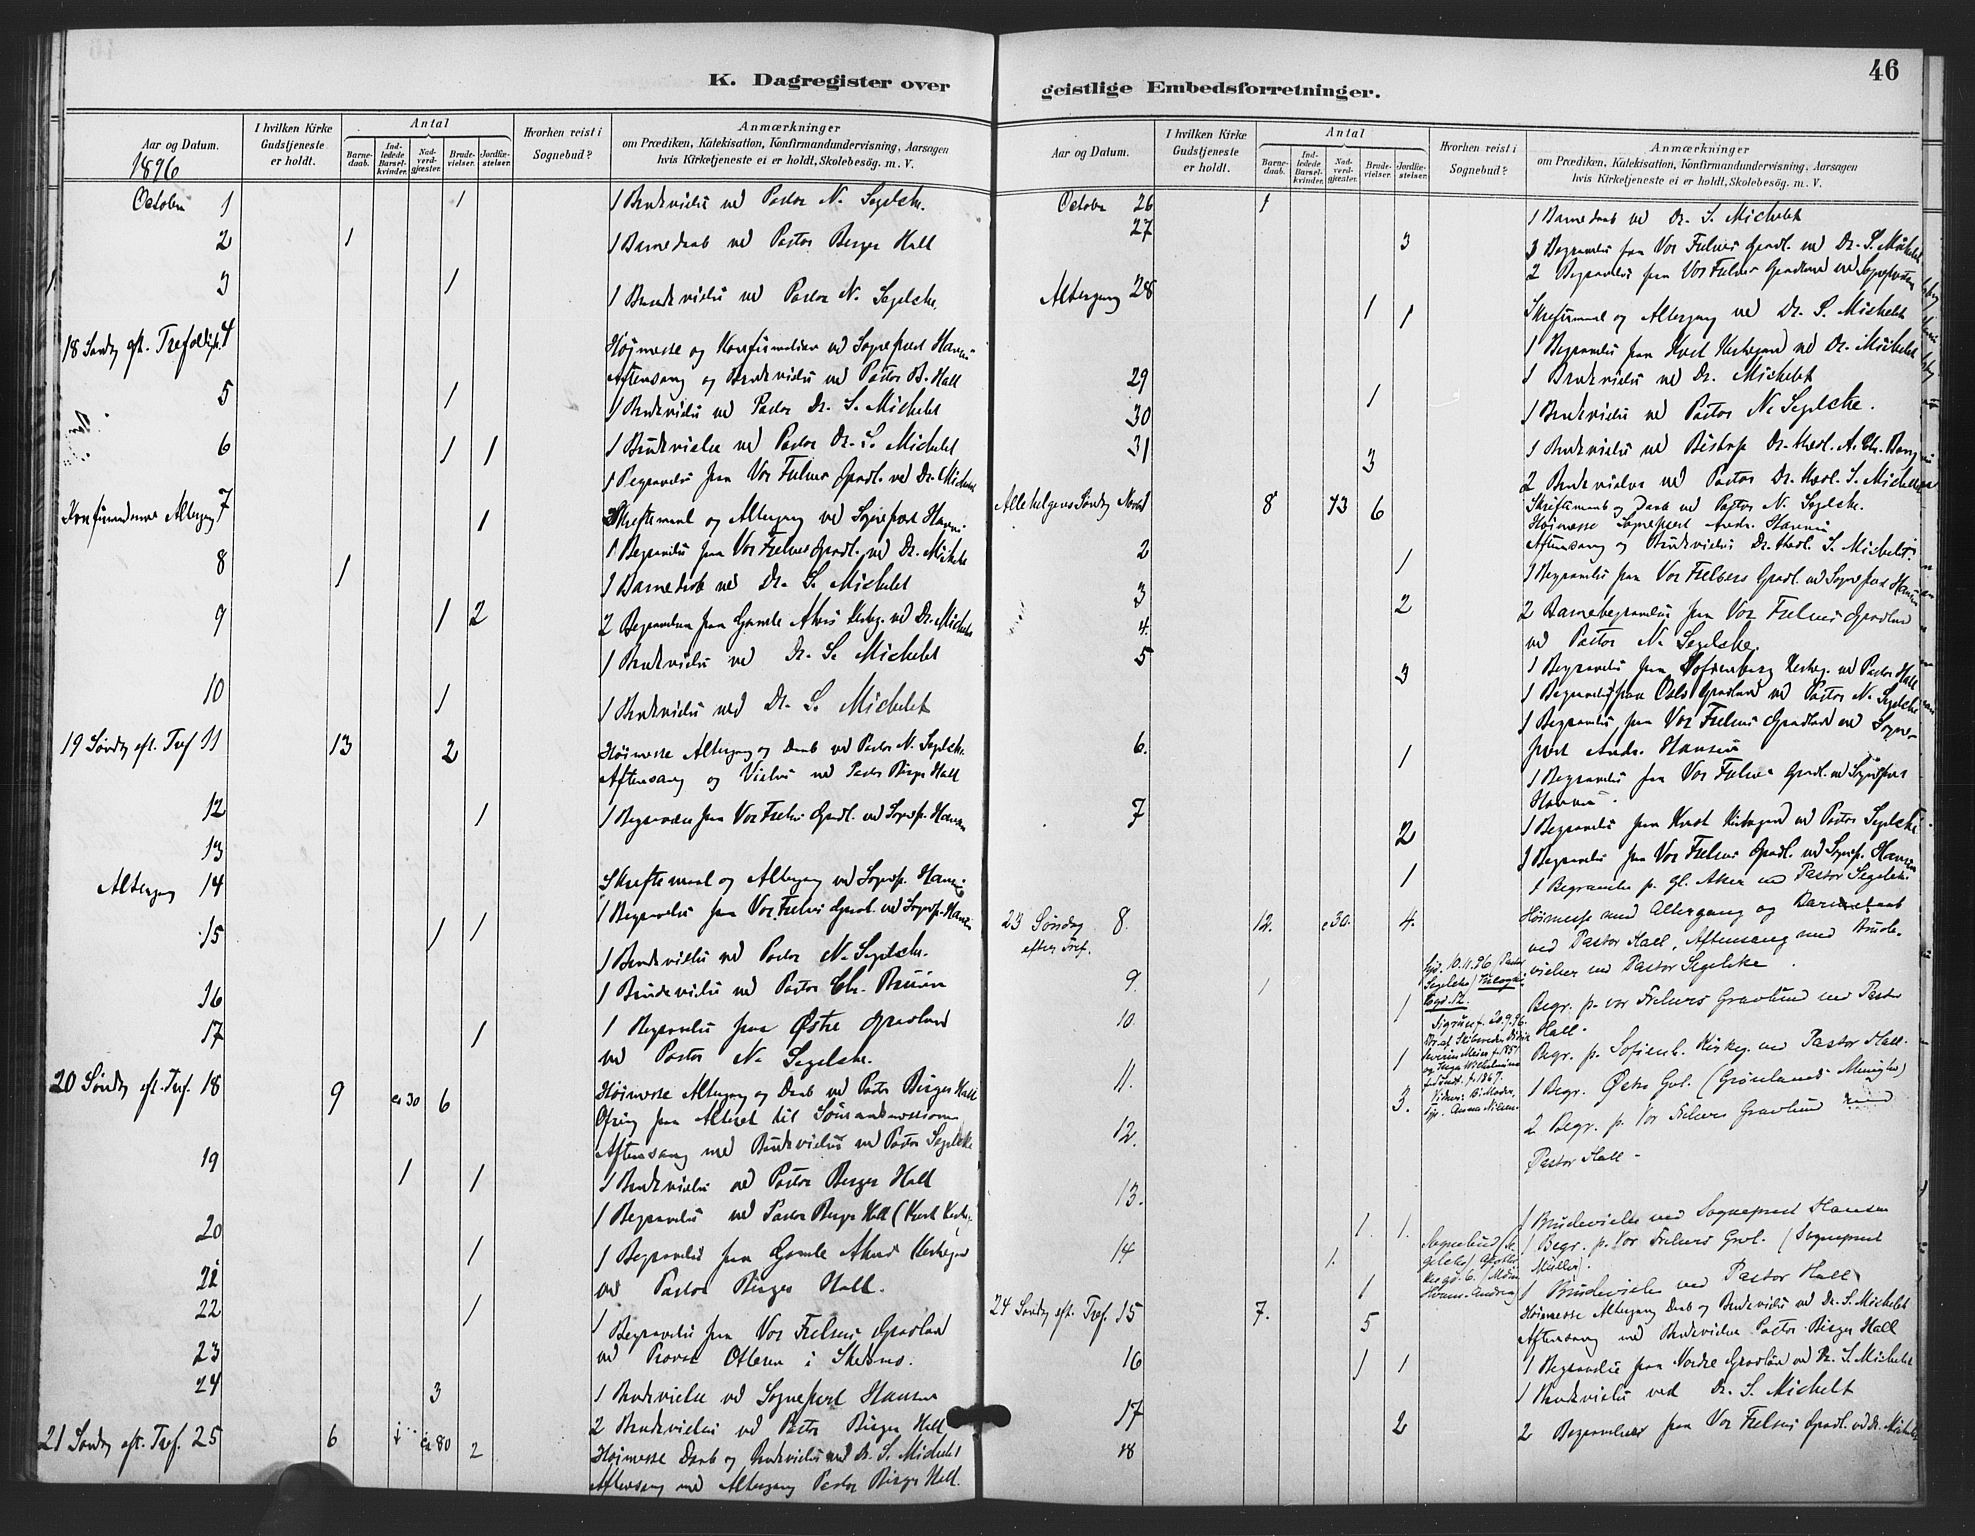 46
K. Dagregister over
geistlige Embedsforretninger.
Aar og Datum.
1896
I hvilken Kirke
Gudstjeneste
er holdt.
Antal
Barne-
daab.
Ind-
ledede
Barsel-
kvinder.
Nad-
verd-
gjæster.
Brude-
vielser.
Jordfæ-
stelser.
Hvorhen reist i
Sognebud?
Anmærkninger
om Prædiken, Katekisation, Konfirmandundervisning, Aarsagen
hvis Kirketjeneste ei er holdt, Skolebesög. m. V.
October 1 1 1 Brudevielse ved Pastor N. Segelcke.
2 1 1 Barnedaab ved Pastor Birger Hall
3 1 1 Brudevielse ved Pastor N. Segelcke.
18 Søndg eft. Trefoldigh. 4 Højmesse og Konfirmation ved Sognepræst Hansen
Aftensang og Brudevielse ved Pastor B. Hall
5 1 1 Brudevielse ved Pastor Dr. S. Michelet
6 1 1 1 Brudevielse ved Pastor Dr. S. Michelet
1 Begravelse fra Vor Frelsers Gravl. ved Dr. Michelet
Konfirmandernes Altergang 7 1 Skriftemaal og Altergang ved Sognepræst Hansen
1 Begravelse fra Vor Frelsers Gravl. ved Dr. Michelet
8 1 1 Barnedaab ved Dr. S. Michelet
9 1 2 2 Begravelser fra Gamle Akers Kirkeg. ved Dr. Michelet
1 Brudevielse ved Dr. S. Michelet
10 1 1 Brudevielse ved Dr. S. Michelet
19 Søndg eft. Tref 11 13 2 Høimesse Altergang og Daab ved Pastor N. Segelcke
Aftensang og Vielse ved Pastor Birger Hall
12 1 1 Begravelse fra Vor Frelsers Gravl. ved Sognepr. Hansen
13
Altergang 14 Skriftemaal og Altergang ved Sognepr. Hansen
1 Begravelse fra Vor Frelsers Gravl. ved Sognepr. Hansen
15 1 1 1 Brudevielse ved Pastor N. Segelcke.
16 1 Brudevielse ved Pastor Chr. Bruun
17 1 1 Begravelse fra Østre Gravlund
ved Pastor N. Segelcke.
20 Søndg eft. Tref. 18 9 ca 30 6 Høimesse Altergang og Daab ved Pastor Birger Hall
Ofring fra Alteret til Sømandsmissionen
Aftensang med Brudevielse ved Pastor Segelcke
19 1 1 1 Brudevielse ved Pastor Birger Hall
1 Begravelse ved Pastor Birger Hall
20 1 1 Begravelse fra Gamle Akers Kirkegaard
ved Pastor Birger Hall.
21
22 1 1 Begravelse fra Vor Frelsers Gravlund
23 ved Provst Ottesen i
24 3 1 Brudevielse ved Sognepræst Hansen
2 Brudevielser ved Pastor Birger Hall
21 Søndg eft. Tref. 25 6 ca 80 2 Høimesse Daab og Brudevielse ved Dr. S. Michelet
Aftensang med Altergang Pastor Birger Hall.
Aar og Datum.
I hvilken Kirke
Gudstjeneste
er holdt.
Antal
Barne-
daab.
Ind-
ledede
Barsel-
kvinder.
Nad-
verd-
gjæster.
Brude-
vielser.
Jordfæ-
stelser.
Hvorhen reist i
Sognebud?
Anmærkninger
om Prædiken, Katekisation, Konfirmandundervisning, Aarsagen
hvis Kirketjeneste ei er holdt, Skolebesög. m. V.
October 26 1 1 Barnedaab ved Dr. S. Michelet
27 3 3 Begravelser fra Vor Frelsers Gravl. ved Dr. S. Michelet
2 Begravelser fra Vor Frelsers Gravlund ved Sognepræsten
Altergang 28 1 1 Skriftemaal og Altergang ved Dr. S. Michelet
1 Begravelse fra Kirkegaard ved Dr. Michelet
29 1 Brudevielse ved Dr. Michelet
30 1 1 Brudevielse ved Pastor N. Segelcke.
31 3 1 Brudevielse ved Biskop Dr. theol. A. Chr. Bang
2 Brudevielser ved Pastor Dr. theol. S. Michelet
Allehelgens Søndag Novbr 1 8 73 6 Skriftemaal og Daab ved Pastor N. Segelcke.
Høimesse Sognepræst Andr. Hansen
Aftensang og Brudevielser Dr. theol. S. Michelet
2 1 1 Begravelse fra Vor Frelsers Gravl. ved Sognepræst Hansen
3 2 2 Barnebegravelser fra Vor Frelsers Gravlund
4. ved Pastor N. Segelcke.
5 3 1 Begravelse fra Sofienberg Kirkeg. ved Pastor Hall
1 Begravelse fra Oslo Gravlund ved Pastor N. Segelcke
1 Begravelse fra Vor Frelsers Gravlund ved Sogne-
præst Andr. Hansen
6. 1 1 Begravelse fra Vor Frelsers Gravl. ved Sognepræst
Hansen.
7 2 1 Begravelse fra Kirkegaard ved Pastor Segelcke
1 Begravelse fra Vor Frelsers Gravl. ved Sognepr. Hansen
1 1 Begravelse p. Gl. Aker ved Pastor Segelcke
23 Søndag 8. 12. c 30. 4. Høimesse med Altergang og Barnedaab
efter Tref. ved Pastor Hall, Aftensang med Brude-
vielser ved Pastor Segelcke.
9. 1 1 Begr. p. vor Frelsers Gravlund ved Pastor
Hall.
10. 1 Begr. p. Sofienb. Kirkeg. ved Pastor Hall.
11. 3. 1 Begr. Østre Grl. (Grønlands Menighed)
2 Begr. p. Vor Frelsers Gravlund ved
12. Pastor Hall -
13. 1. 1. 1 Brudevielse ved Sognepræst Hansen
1 Begr. p. Vor Frelsers Grvl. (Sognepræst
Müller).
14 1. 1 1 Brudevielse ved Pastor Hall
24 Søndg eft. Tref. 15 7. 5 Høimesse Altergang Daab og Brudevielse ved Dr. S. Michelet
Aftensang med Brudevielse Pastor Birger Hall
16 1 1 1 Begravelse fra Nordre Gravlund ved Dr. S. Michelet
1 Brudevielse ved Dr. S. Michelet
17 2 2 Begravelser fra Vor Frelsers Gravl. ved Dr. Michelet
18